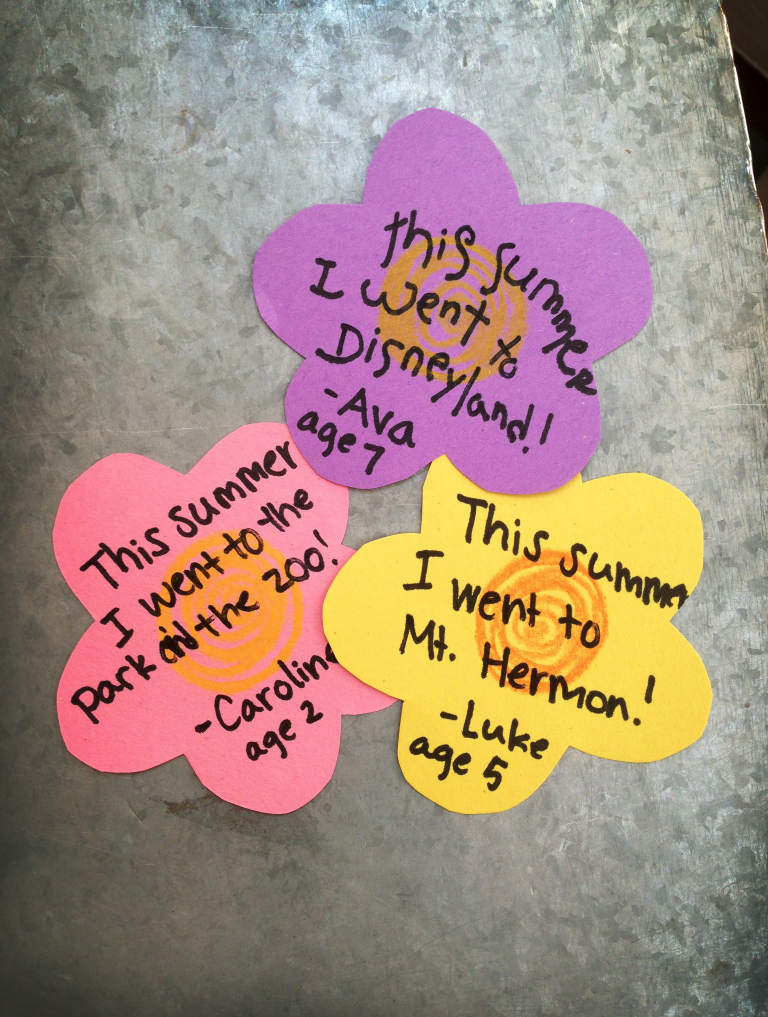 this summer
I went to
Disneyland!
-Ava
age 7
This summer
I went to the
park and the zoo!
-Caroline
age 2
This summer
I went to
Mt. Hermon!
-Luke
age 5